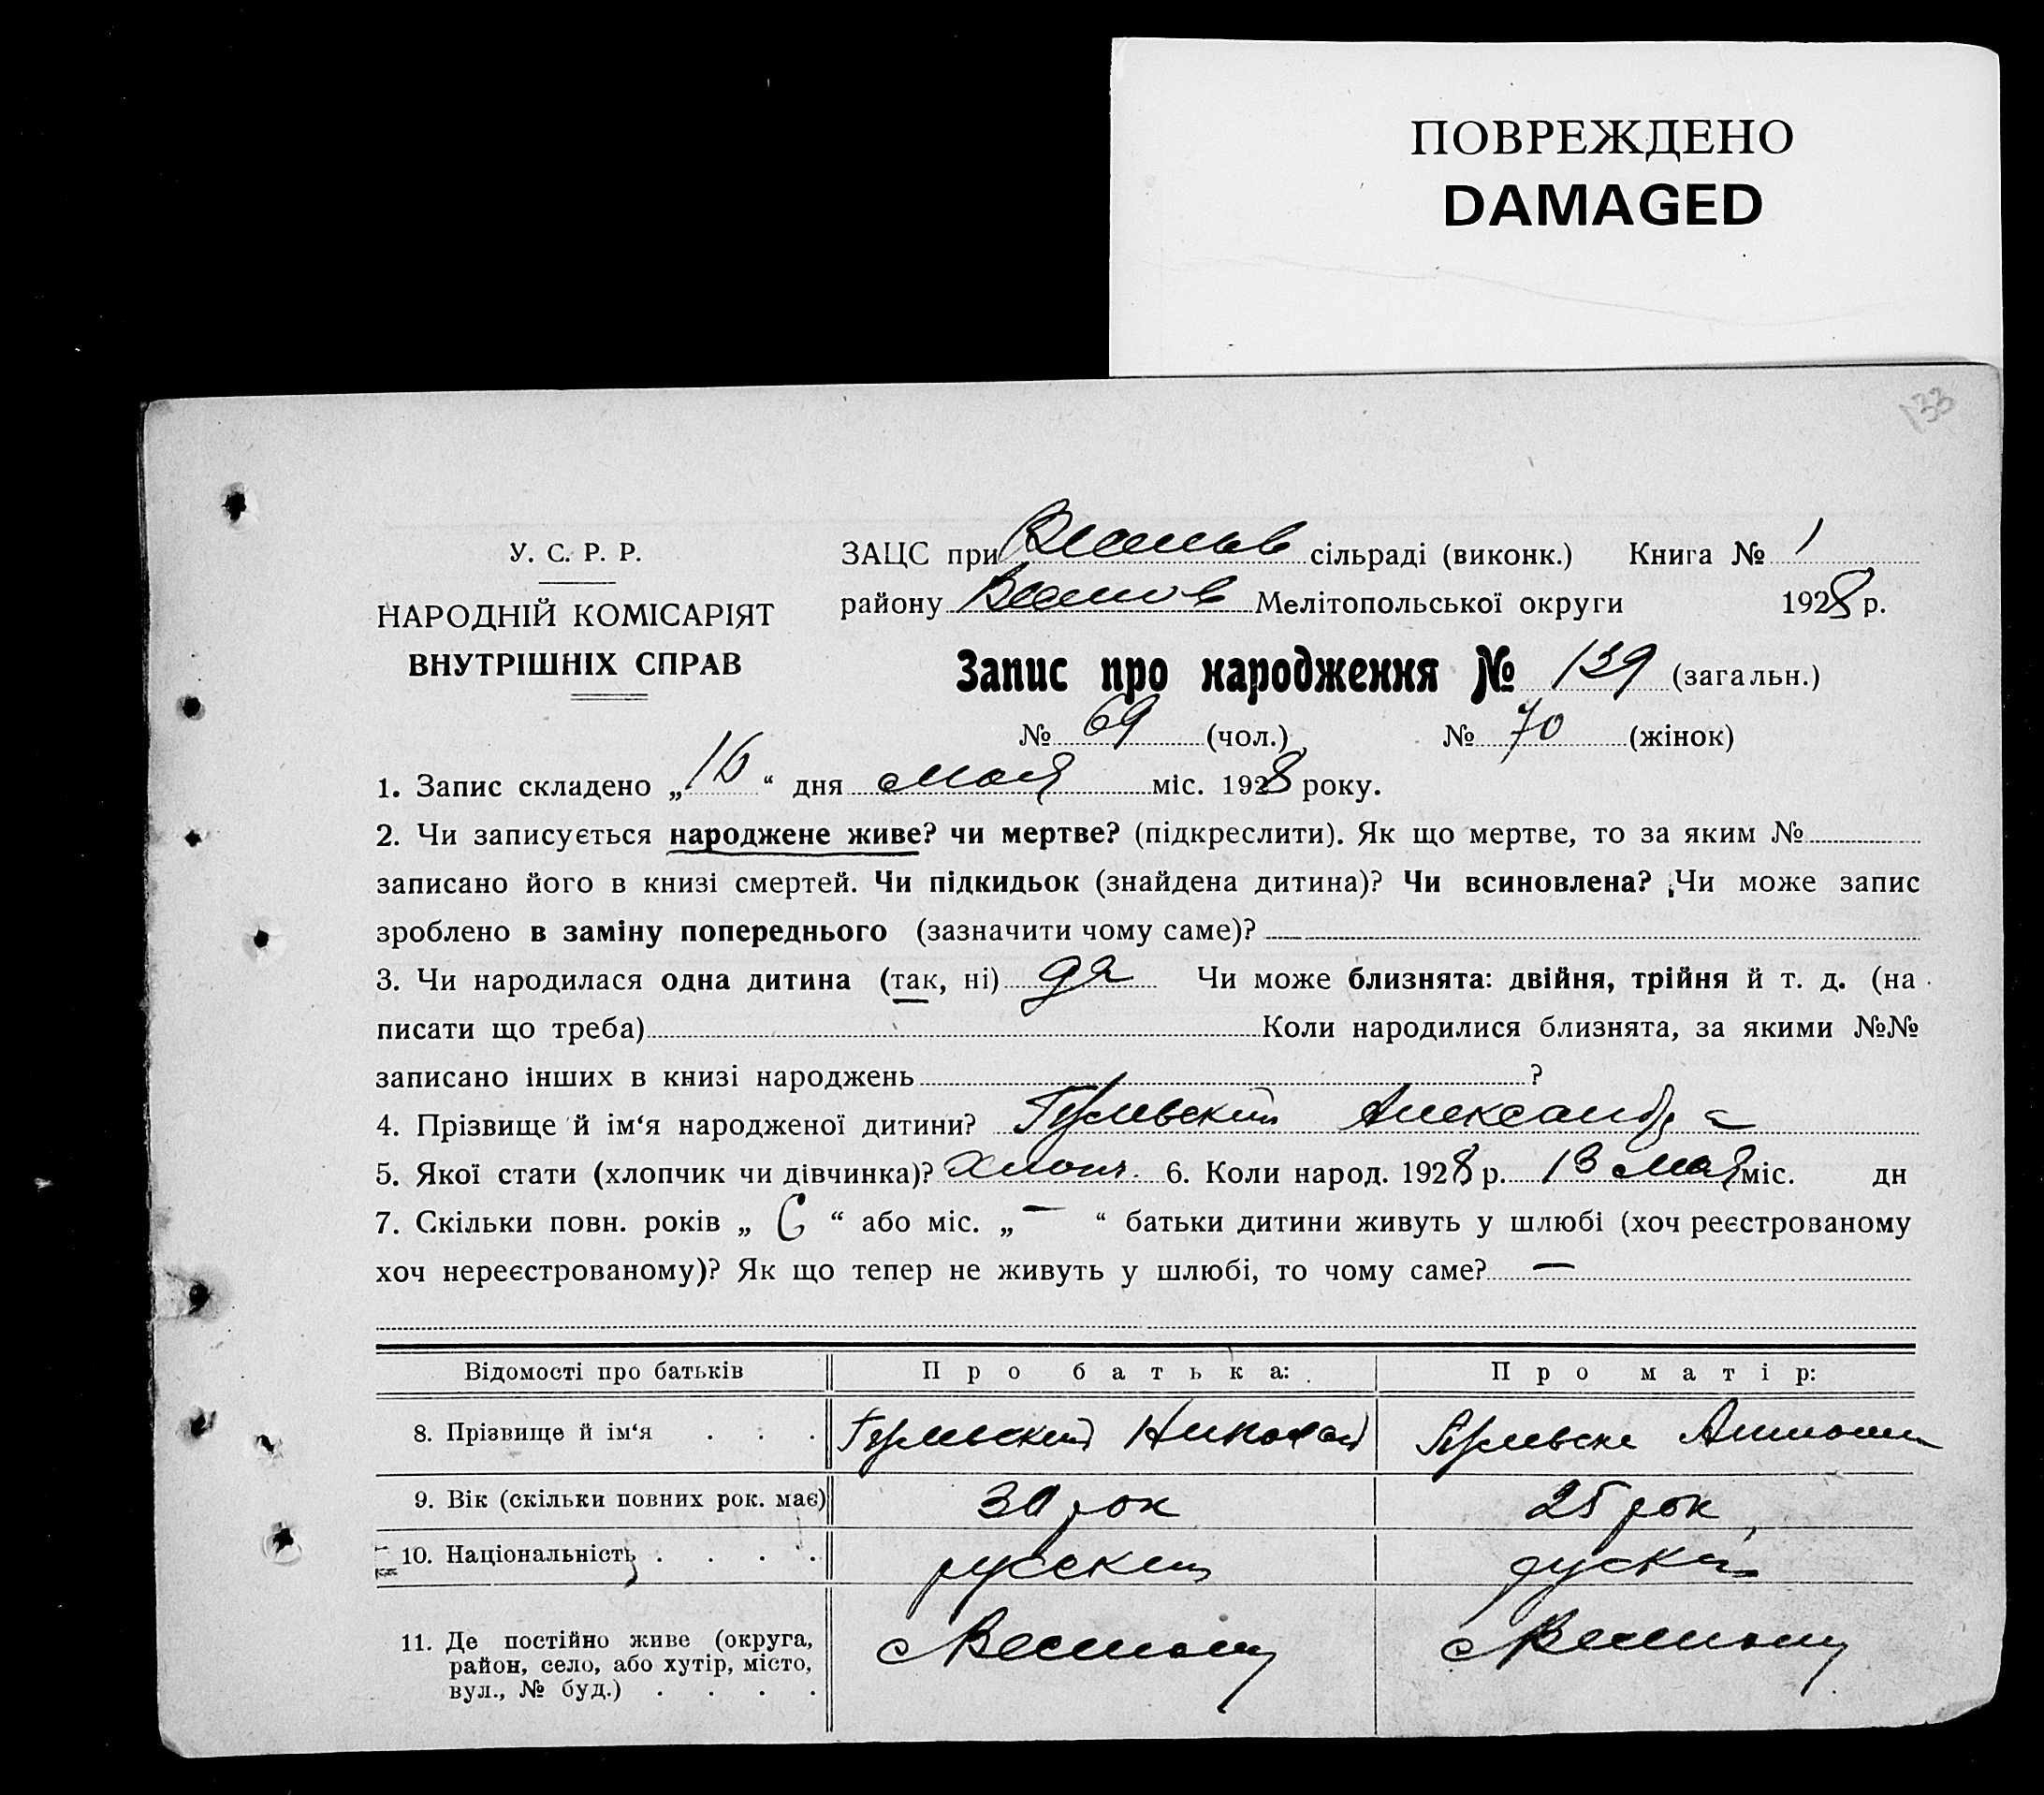 ПОВРЕЖДЕНО
DAMAGED
133
У. С. Р. Р.
НАРОДНІЙ КОМІСАРІЯТ
ВНУТРІШНІХ СПРАВ
ЗАЦС при сільраді (виконк.) Книга № 1
району Мелітопольської округи 1928 р.
Запис про народження № 139 (загальн.)
№ 69 (чол.) № 70 (жінок)
1. Запис складено „16“ дня мая міс. 1928 року.
2. Чи записується народжене живе? чи мертве? (підкреслити). Як що мертве, то за яким №
записано його в книзі смертей. Чи підкидьок (знайдена дитина)? Чи всиновлена? Чи може запис
зроблено в заміну попереднього (зазначити чому саме)?
3. Чи народилася одна дитина (так, ні) да Чи може близнята: двійня, трійня й т. д. (на
писати що треба) Коли народилися близнята, за якими №№
записано інших в книзі народжень ?
4. Прізвище й ім‘я народженої дитини? Александр
5. Якої стати (хлопчик чи дівчинка)? хлопч. 6. Коли народ. 1928 р. 13 мая міс. дн
7. Скільки повн. років „ 6 “ або міс. „ — “ батьки дитини живуть у шлюбі (хоч реєстрованому
хоч нереєстрованому)? Як що тепер не живуть у шлюбі, то чому саме? —
Відомості про батьків Про батька: Про матір:
8. Прізвище й ім‘я . . . Николай
9. Вік (скільки повних рок. має) 30 рок 25 рок
10. Національність . . . . русский руска
11. Де постійно живе (округа,
район, село, або хутір, місто,
вул., № буд.) . . . .